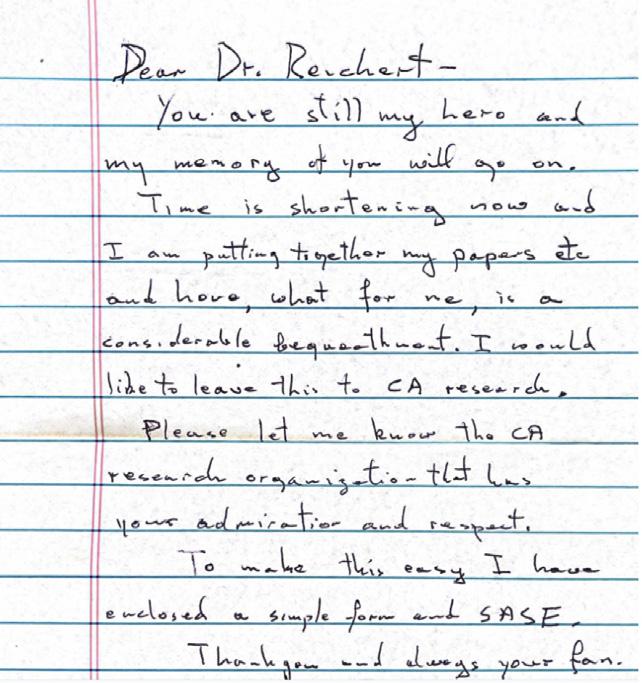 Dear Dr. Reichert-
You are still my hero and
my memory of you will go on.
Time is shortening now and
I am putting together my papers etc
and have, what for me, is a
considerable bequeathment. I would
like to leave this to CA research.
Please let me know the CA
research organization that has
your admiration and respect.
To make this easy I have
enclosed a simple form and SASE.
Thankyou and always your fan.